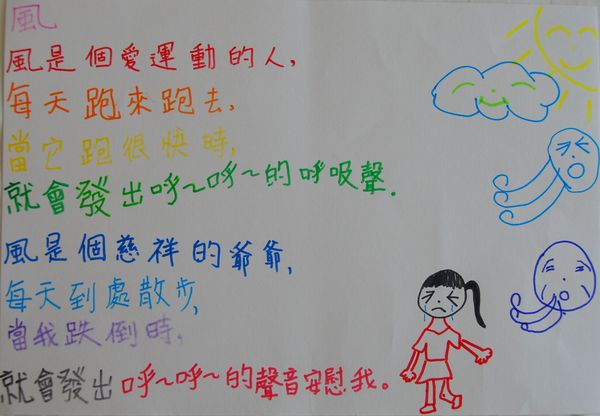 風
風是個愛運動的人,
每天跑來跑去,
當它跑很快時,
就會發出呼~呼~的呼吸聲.
風是個慈祥的爺爺,
每天到處散步,
當我跌倒時,
就會發出呼~呼~的聲音安慰我。